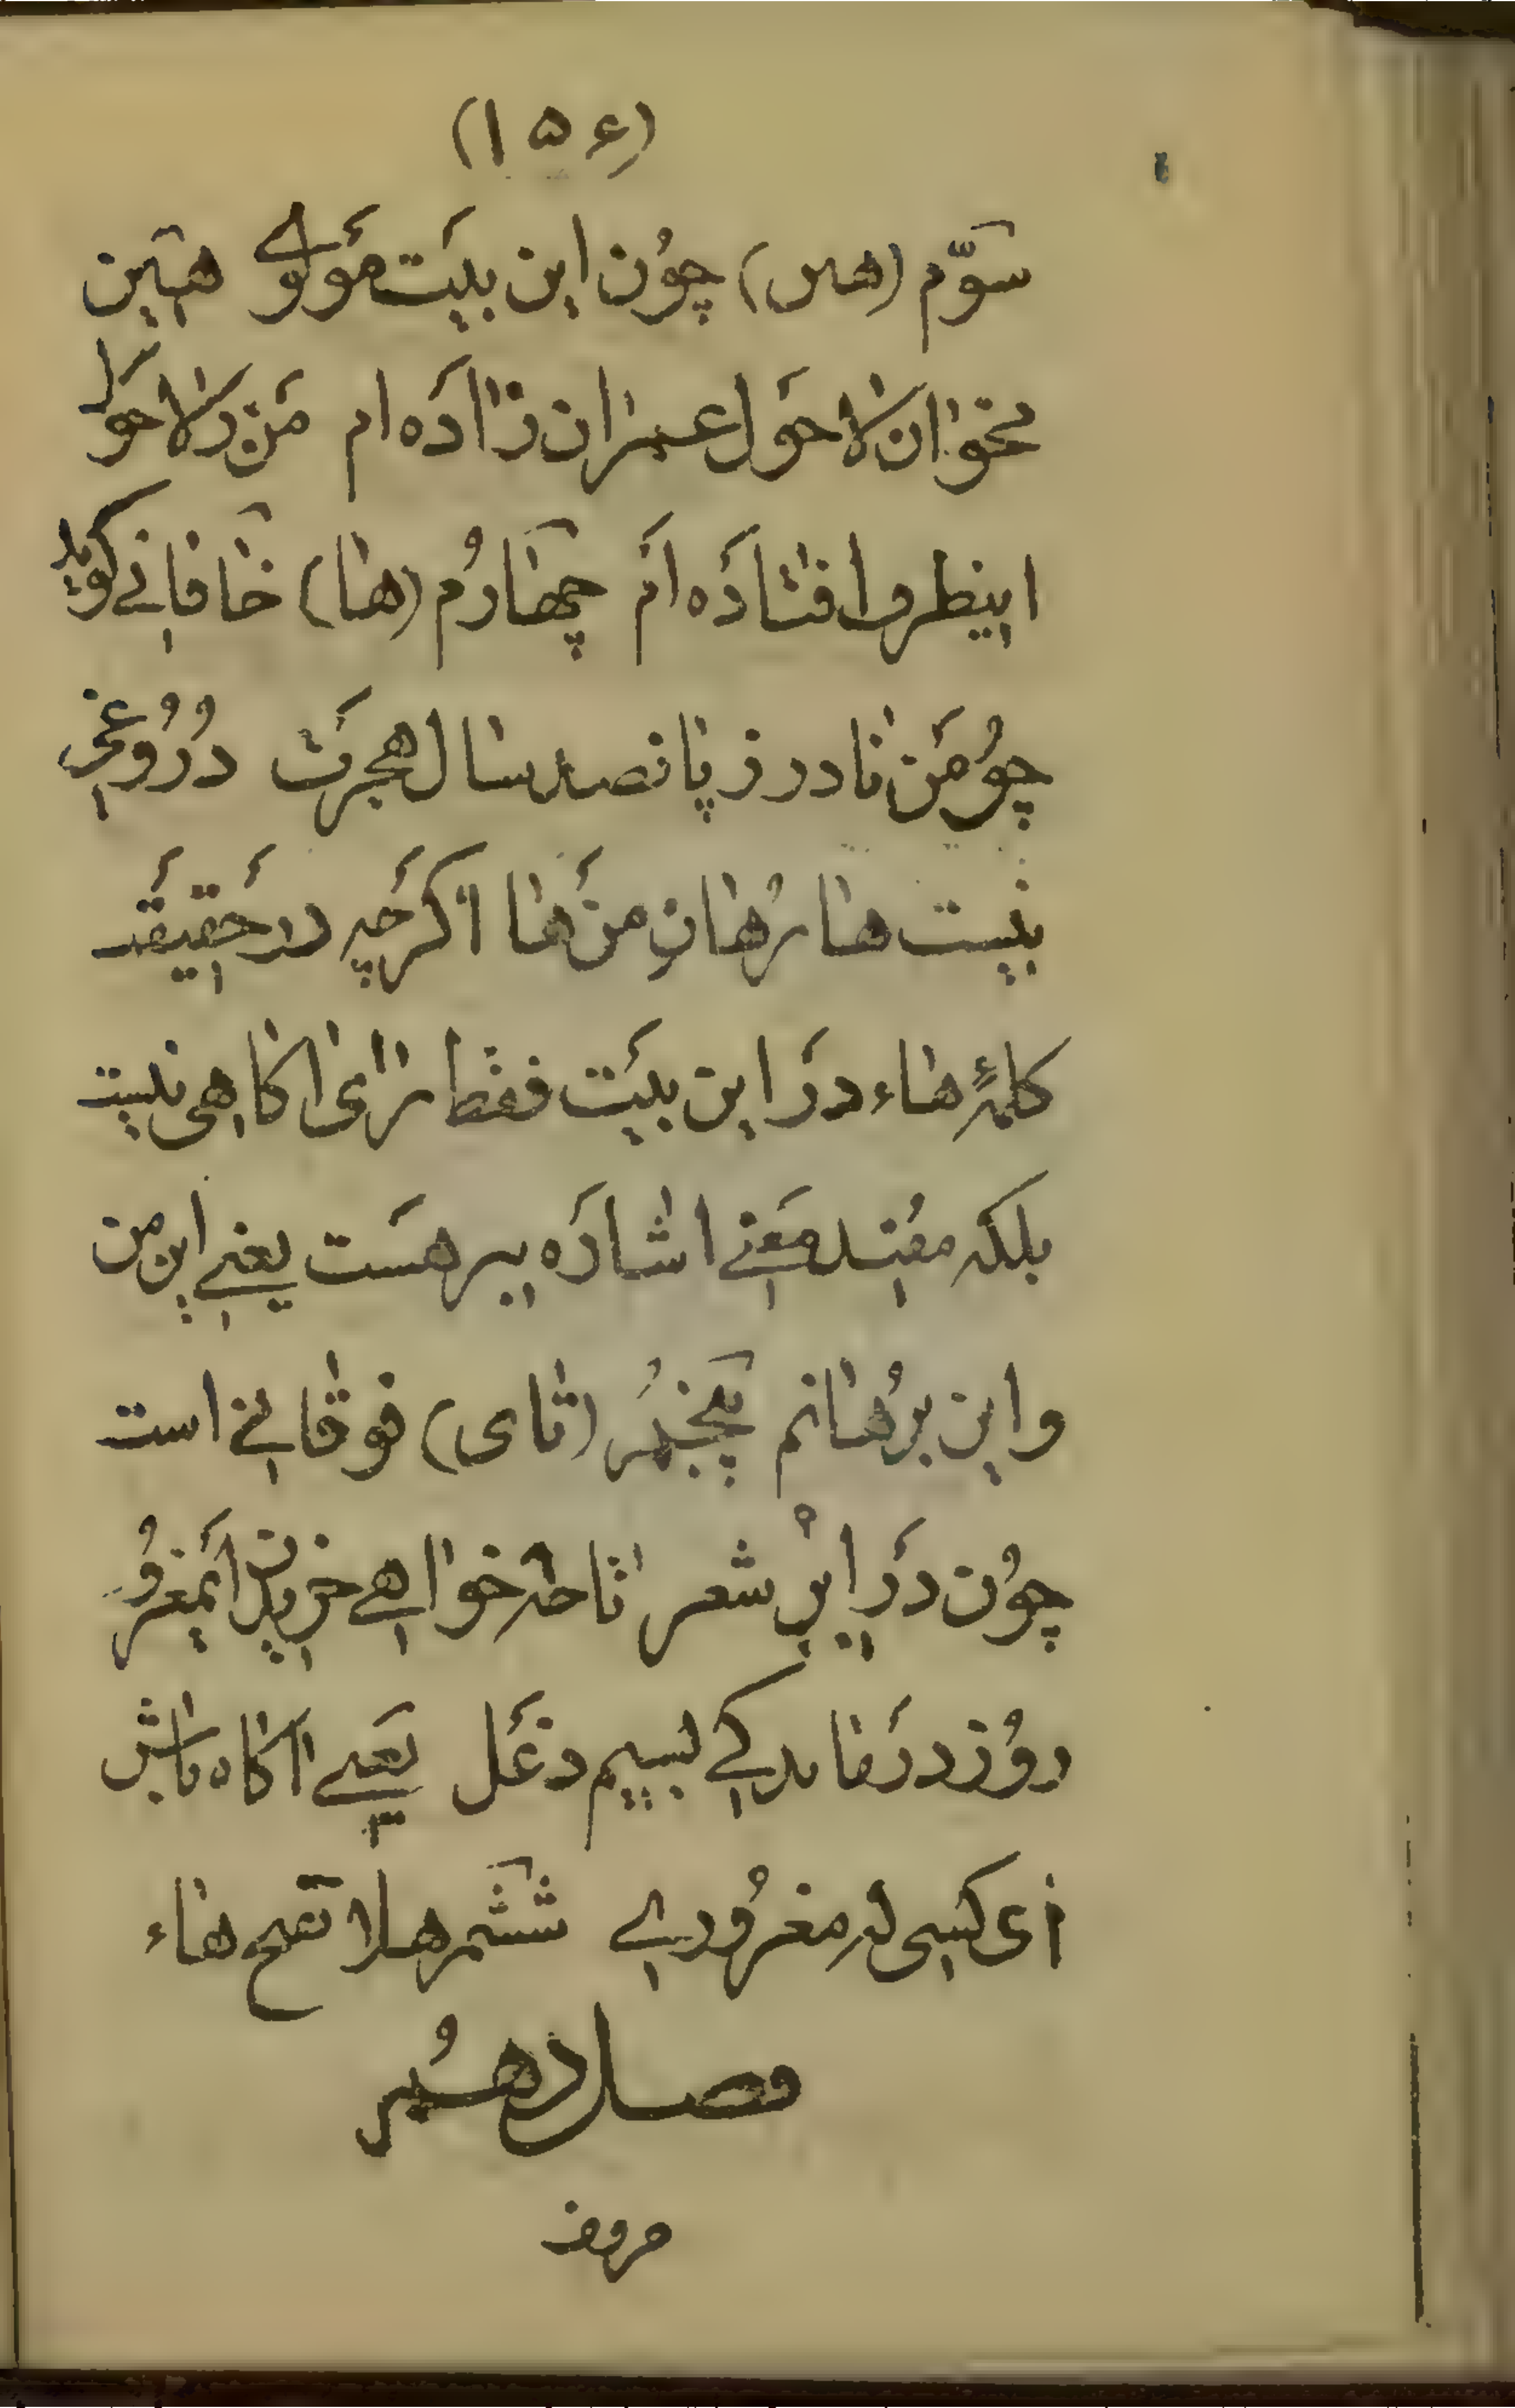 (۱۵۶)
سَوّم (هین) چوُن این بیَت مَولَوے هَین
مخوان لاحَول عمران زادَه ام مَن زلاحَول
اینطرف افتادَه اَم چهَارُم (هَا) خَاقانے گوید
چوُ مَن نادر ز پانصد سال هجرَت دُرُوغی
نیست ها بُرهانِ مَن ها اگرچَه در حَقیقَت
کلمۀ هاء دَر این بیَت فقط برای آگاهی نیست
بلکه مفید مَعنے اشارَه نیز هسَت یعنے این من
و این بُرهانم پنجُم (تای) فوقانے است
چوُن دَر این شعر تا چه خواهے خریدن اَیمغرُو
رُوز درمَاندگے بسیم دغَل یَعنے آگاه باش
اَی کسی که مغرُورے ششُم هلا تسَع هاء
فصل دهُم
حروف